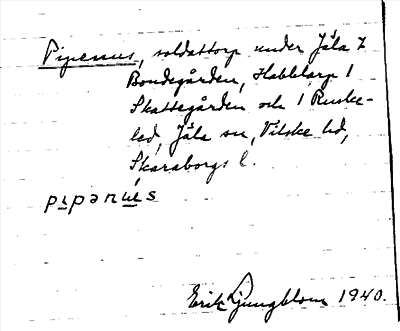 Pipenus, soldattorp under Jäla 7
Bondegården, Habblarp 1
Skattegården och 1 Ruske-
led, Jäla sn, Vilske hd,
Skaraborgs l.
pɩpənɯs
Erik Ljungblom 1940.